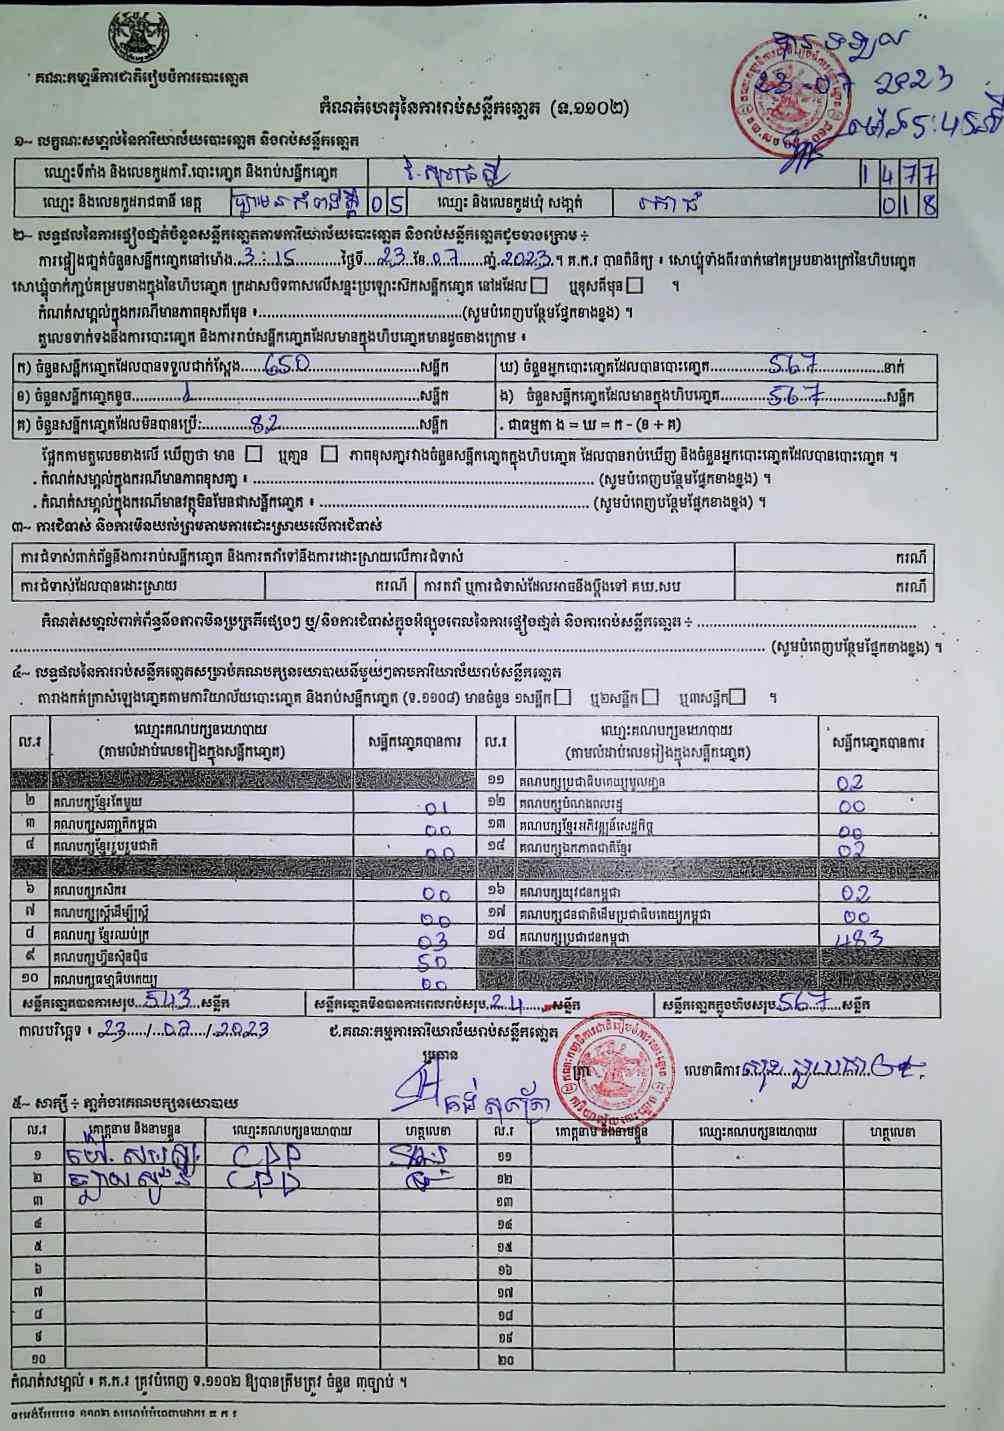 បានទទួល
23-07 2023
ម៉ោង 5:45នាទី
គណៈកម្មាធិការជាតិរៀបចំការបោះឆ្នោត
កំណត់ហេតុនៃការរាប់សន្លឹកឆ្នោត (ទ.១១០២)
១~ លក្ខណៈសម្គាល់នៃការិយាល័យបោះឆ្នោត និងរាប់សន្លឹកឆ្នោត
ឈ្មោះទីតាំង និងលេខកូដការិ.បោះឆ្នោត និងរាប់សន្លឹកឆ្នោត 1477
ឈ្មោះ និងលេខកូដរាជធានី ខេត្ត 05 ឈ្មោះ និងលេខកូដឃុំ សង្កាត់ 018
២~ លទ្ធផលនៃការផ្ទៀងផ្ទាត់ចំនួនសន្លឹកឆ្នោតតាមការិយាល័យបោះឆ្នោត និងរាប់សន្លឹកឆ្នោតដូចខាងក្រោម ÷
ការផ្ទៀងផ្ទាត់ចំនួនសន្លឹកឆ្នោតនៅម៉ោង 3:15 ថ្ងៃទី 23 ខែ 07 ឆ្នាំ 2023 ។ គ.ក.រ បានពិនិត្យ ៖ សោឃ្លុំទាំងពីរចាក់នៅគម្របខាងក្រៅនៃហិបឆ្នោត
សោឃ្លុំចាក់ភ្ជាប់គម្របខាងក្នុងនៃហិបឆ្នោត ក្រដាសបិទពាសលើសន្ទះប្រឡោះសឹកសន្លឹកឆ្នោត នៅដដែល ☐ ឬខុសពីមុន ☐ ។
កំណត់សម្គាល់ក្នុងករណីមានភាពខុសពីមុន ៖ (សូមបំពេញបន្ថែមផ្នែកខាងខ្នង) ។
តួលេខទាក់ទងនឹងការបោះឆ្នោត និងការរាប់សន្លឹកឆ្នោតដែលមានក្នុងហិបឆ្នោតមានដូចខាងក្រោម ៖
ក) ចំនួនសន្លឹកឆ្នោតដែលបានទទួលជាក់ស្តែង 650 សន្លឹក ឃ) ចំនួនអ្នកបោះឆ្នោតដែលបានបោះឆ្នោត 567 នាក់
ខ) ចំនួនសន្លឹកឆ្នោតខូច 1 សន្លឹក ង) ចំនួនសន្លឹកឆ្នោតដែលមានក្នុងហិបឆ្នោត 567 សន្លឹក
គ) ចំនួនសន្លឹកឆ្នោតដែលមិនបានប្រើ: 82 សន្លឹក . ជាធម្មតា ង = ឃ = ក - (ខ + គ)
ផ្អែកតាមតួលេខខាងលើ ឃើញថា មាន ☐ ឬគ្មាន ☐ ភាពខុសគ្នារវាងចំនួនសន្លឹកឆ្នោតក្នុងហិបឆ្នោត ដែលបានរាប់ឃើញ និងចំនួនអ្នកបោះឆ្នោតដែលបានបោះឆ្នោត ។
. កំណត់សម្គាល់ក្នុងករណីមានភាពខុសគ្នា ៖ (សូមបំពេញបន្ថែមផ្នែកខាងខ្នង) ។
. កំណត់សម្គាល់ក្នុងករណីមានវត្ថុមិនមែនជាសន្លឹកឆ្នោត ៖ (សូមបំពេញបន្ថែមផ្នែកខាងខ្នង) ។
៣~ ការជំទាស់ និងការមិនយល់ព្រមតាមការដោះស្រាយលើការជំទាស់
ការជំទាស់ពាក់ព័ន្ធនឹងការរាប់សន្លឹកឆ្នោត និងការតវ៉ាទៅនឹងការដោះស្រាយលើការជំទាស់ ករណី
ការជំទាស់ដែលបានដោះស្រាយ ករណី ការតវ៉ា ឬការជំទាស់ដែលអាចនឹងប្តឹងទៅ គឃ.សប ករណី
កំណត់សម្គាល់ពាក់ព័ន្ធនឹងភាពមិនប្រក្រតីផ្សេងៗ ឬ/និងការជំទាស់ក្នុងអំឡុងពេលនៃការផ្ទៀងផ្ទាត់ និងការរាប់សន្លឹកឆ្នោត ÷
(សូមបំពេញបន្ថែមផ្នែកខាងខ្នង) ។
៤~ លទ្ធផលនៃការរាប់សន្លឹកឆ្នោតសម្រាប់គណបក្សនយោបាយនីមួយៗតាមការិយាល័យរាប់សន្លឹកឆ្នោត
តារាងកត់ត្រាសំឡេងឆ្នោតតាមការិយាល័យបោះឆ្នោត និងរាប់សន្លឹកឆ្នោត (ទ.១១០៨) មានចំនួន ១សន្លឹក ☐ ឬ២សន្លឹក ☐ ឬ៣សន្លឹក ☐ ។
ល.រ ឈ្មោះគណបក្សនយោបាយ (តាមលំដាប់លេខរៀងក្នុងសន្លឹកឆ្នោត) សន្លឹកឆ្នោតបានការ ល.រ ឈ្មោះគណបក្សនយោបាយ (តាមលំដាប់លេខរៀងក្នុងសន្លឹកឆ្នោត) សន្លឹកឆ្នោតបានការ
១១ គណបក្សប្រជាធិបតេយ្យមូលដ្ឋាន 02
២ គណបក្សខ្មែរតែមួយ 01 ១២ គណបក្សបំណងពលរដ្ឋ 00
៣ គណបក្សសញ្ជាតិកម្ពុជា 00 ១៣ គណបក្សខ្មែរអភិវឌ្ឍន៍សេដ្ឋកិច្ច 00
៤ គណបក្សខ្មែររួបរួមជាតិ 00 ១៤ គណបក្សឯកភាពជាតិខ្មែរ 02
៦ គណបក្សកសិករ 00 ១៦ គណបក្សយុវជនកម្ពុជា 02
៧ គណបក្សស្ត្រីដើម្បីស្ត្រី 00 ១៧ គណបក្សជនជាតិដើមប្រជាធិបតេយ្យកម្ពុជា 00
៨ គណបក្ស ខ្មែរឈប់ក្រ 03 ១៨ គណបក្សប្រជាជនកម្ពុជា 483
៩ គណបក្សហ៊្វុនស៊ិនប៉ិច 50
១០ គណបក្សធម្មាធិបតេយ្យ 00
សន្លឹកឆ្នោតបានការសរុប 543 សន្លឹក សន្លឹកឆ្នោតមិនបានការពេលរាប់សរុប 24 សន្លឹក សន្លឹកឆ្នោតក្នុងហិបសរុប 567 សន្លឹក
កាលបរិច្ឆេទ ៖ 23/07/2023 ជ.គណៈកម្មការការិយាល័យរាប់សន្លឹកឆ្នោត
ប្រធាន
ត្រា លេខាធិការ
៥~ សាក្សី ÷ ភ្នាក់ងារគណបក្សនយោបាយ
ល.រ គោត្តនាម និងនាមខ្លួន ឈ្មោះគណបក្សនយោបាយ ហត្ថលេខា ល.រ គោត្តនាម និងនាមខ្លួន ឈ្មោះគណបក្សនយោបាយ ហត្ថលេខា
១ CPP ១១
២ CPP ១២
៣ ១៣
៤ ១៤
៥ ១៥
៦ ១៦
៧ ១៧
៨ ១៨
៩ ១៩
១០ ២០
កំណត់សម្គាល់ ៖ គ.ក.រ ត្រូវបំពេញ ទ.១១០២ ឱ្យបានត្រឹមត្រូវ ចំនួន ៣ច្បាប់ ។